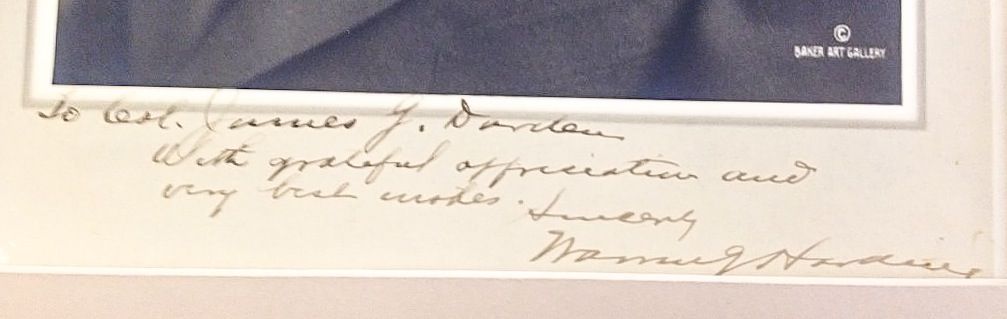 ©
BAKER ART GALLERY
To Col. James G. Darden
With grateful appreciation and
very best wishes.
Sincerely
Warren G Harding